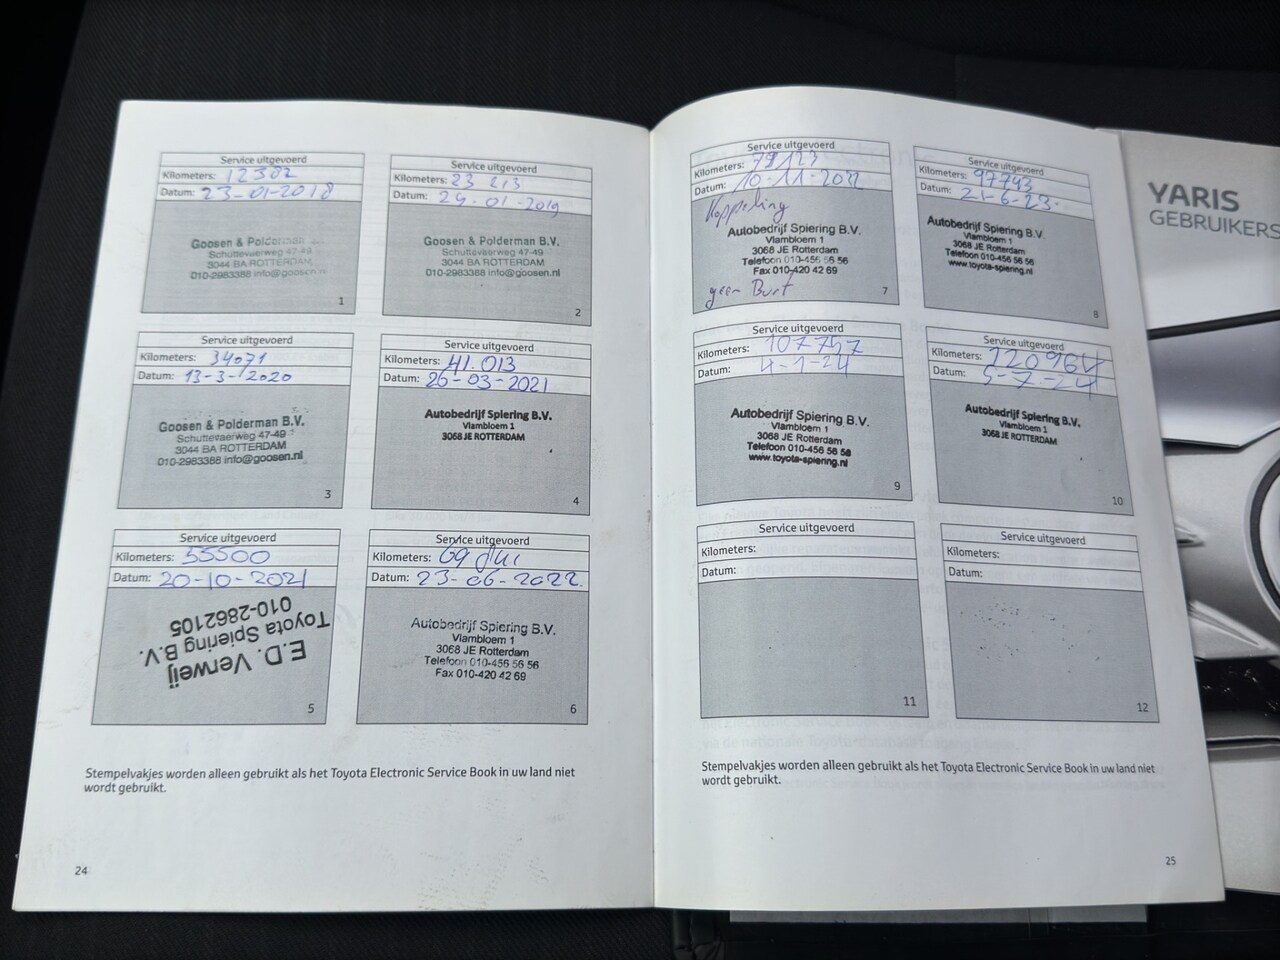 Service uitgevoerd
Kilometers: 12302
Datum: 23-01-2018
Goosen & Polderman
Schuttevaerweg 47-49
3044 BA ROTTERDAM
010-2983388 info@goosen.nl
1
Service uitgevoerd
Kilometers: 23 213
Datum: 24-01-2019
Goosen & Polderman B.V.
Schuttevaerweg 47-49
3044 BA ROTTERDAM
010-2983388 info@goosen.nl
2
Service uitgevoerd
Kilometers: 34071
Datum: 13-3-2020
Goosen & Polderman B.V.
Schuttevaerweg 47-49
3044 BA ROTTERDAM
010-2983388 info@goosen.nl
3
Service uitgevoerd
Kilometers: 41.013
Datum: 26-03-2021
Autobedrijf Spiering B.V.
Vlambloem 1
3068 JE ROTTERDAM
4
Service uitgevoerd
Kilometers: 55500
Datum: 20-10-2021
E.D. Verweij
Toyota Spiering B.V.
010-2862105
5
Service uitgevoerd
Kilometers: 69
Datum: 23-06-2022
Autobedrijf Spiering B.V.
Vlambloem 1
3068 JE Rotterdam
Telefoon 010-456 56 56
Fax 010-420 42 69
6
Stempelvakjes worden alleen gebruikt als het Toyota Electronic Service Book in uw land niet
wordt gebruikt.
24
Service uitgevoerd
Kilometers: 79123
Datum: 10-11-2022
Koppeling
Autobedrijf Spiering B.V.
Vlambloem 1
3068 JE Rotterdam
Telefoon 010-456 56 56
Fax 010-420 42 69
geen Burt
7
Service uitgevoerd
Kilometers: 97743
Datum: 21-6-23
Autobedrijf Spiering B.V.
Vlambloem 1
3068 JE Rotterdam
Telefoon 010-456 56 56
www.toyota-spiering.nl
8
Service uitgevoerd
Kilometers: 107757
Datum: 4-1-24
Autobedrijf Spiering B.V.
Vlambloem 1
3068 JE Rotterdam
Telefoon 010-456 56 56
www.toyota-spiering.nl
9
Service uitgevoerd
Kilometers: 120964
Datum: 5-7-24
Autobedrijf Spiering B.V.
Vlambloem 1
3068 JE ROTTERDAM
10
Service uitgevoerd
Kilometers:
Datum:
11
Service uitgevoerd
Kilometers:
Datum:
12
Stempelvakjes worden alleen gebruikt als het Toyota Electronic Service Book in uw land niet
wordt gebruikt.
25
YARIS
GEBRUIKERS